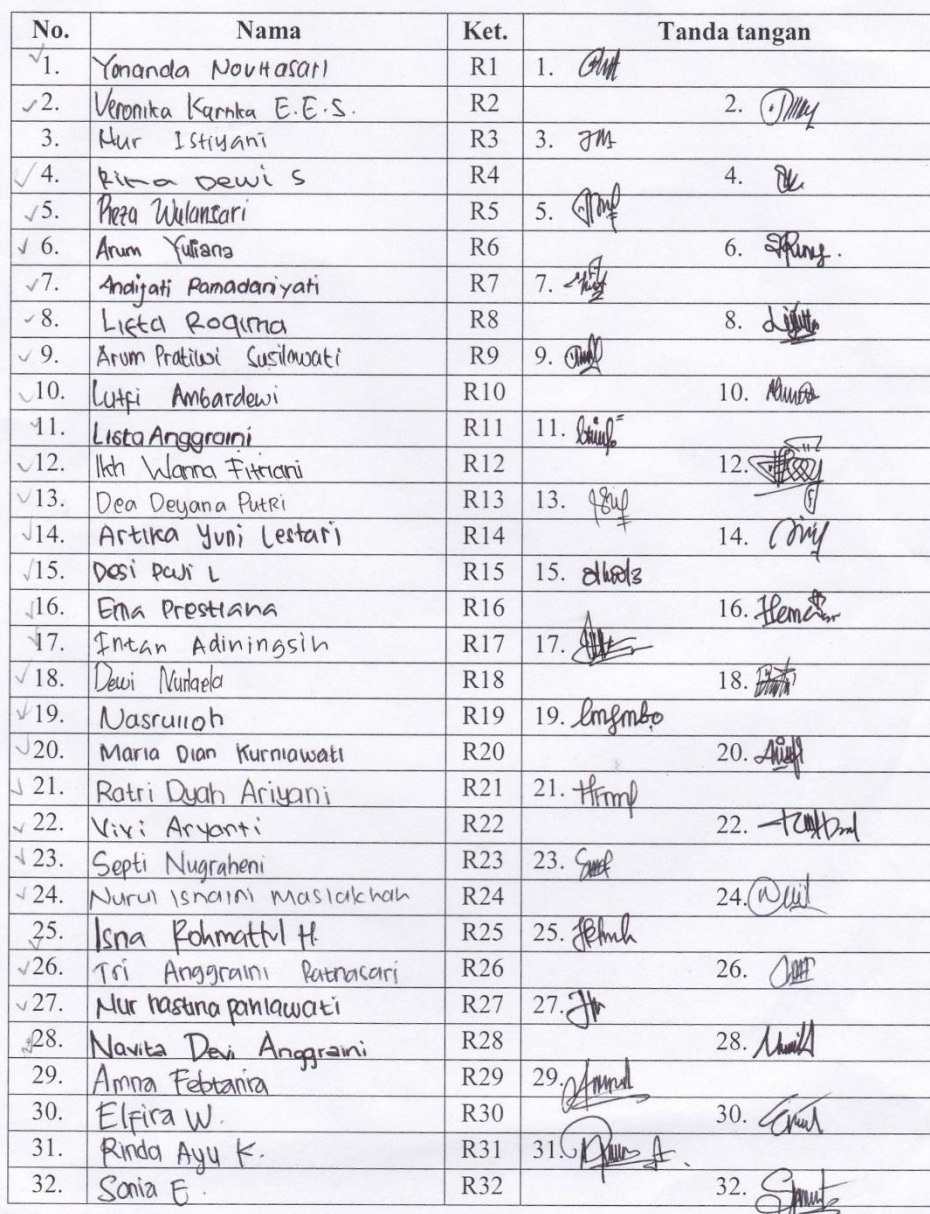 No. Nama Ket. Tanda tangan
1. Yonanda Novitasari R1 1.
2. Veronika Kartika E.E.S. R2 2.
3. Nur Istiyani R3 3.
4. Rima Dewi S R4 4.
5. Reza Wulansari R5 5.
6. Arum Yuliana R6 6.
7. Andijati Ramadaniyati R7 7.
8. Lista Roqima R8 8.
9. Arum Pratiwi Susilowati R9 9.
10. Lutfi Ambardewi R10 10.
11. Lista Anggraini R11 11.
12. Ikh Wanna Fitriani R12 12.
13. Dea Deyana Putri R13 13.
14. Artika Yuni Lestari R14 14.
15. Desi Puji L R15 15.
16. Ema Prestiana R16 16.
17. Intan Adiningsih R17 17.
18. Dewi Nurlaela R18 18.
19. Nasrulloh R19 19.
20. Maria Dian Kurniawati R20 20.
21. Ratri Dyah Ariyani R21 21.
22. Vivi Aryanti R22 22.
23. Septi Nugraheni R23 23.
24. Nurul Isnaini Maslakhah R24 24.
25. Isna Rohmattul H. R25 25.
26. Tri Anggraini Ratnasari R26 26.
27. Nur hastina pahlawati R27 27.
28. Navita Devi Anggraini R28 28.
29. Amna Febtania R29 29.
30. Elfira W. R30 30.
31. Rinda Ayu K. R31 31.
32. Sonia E. R32 32.